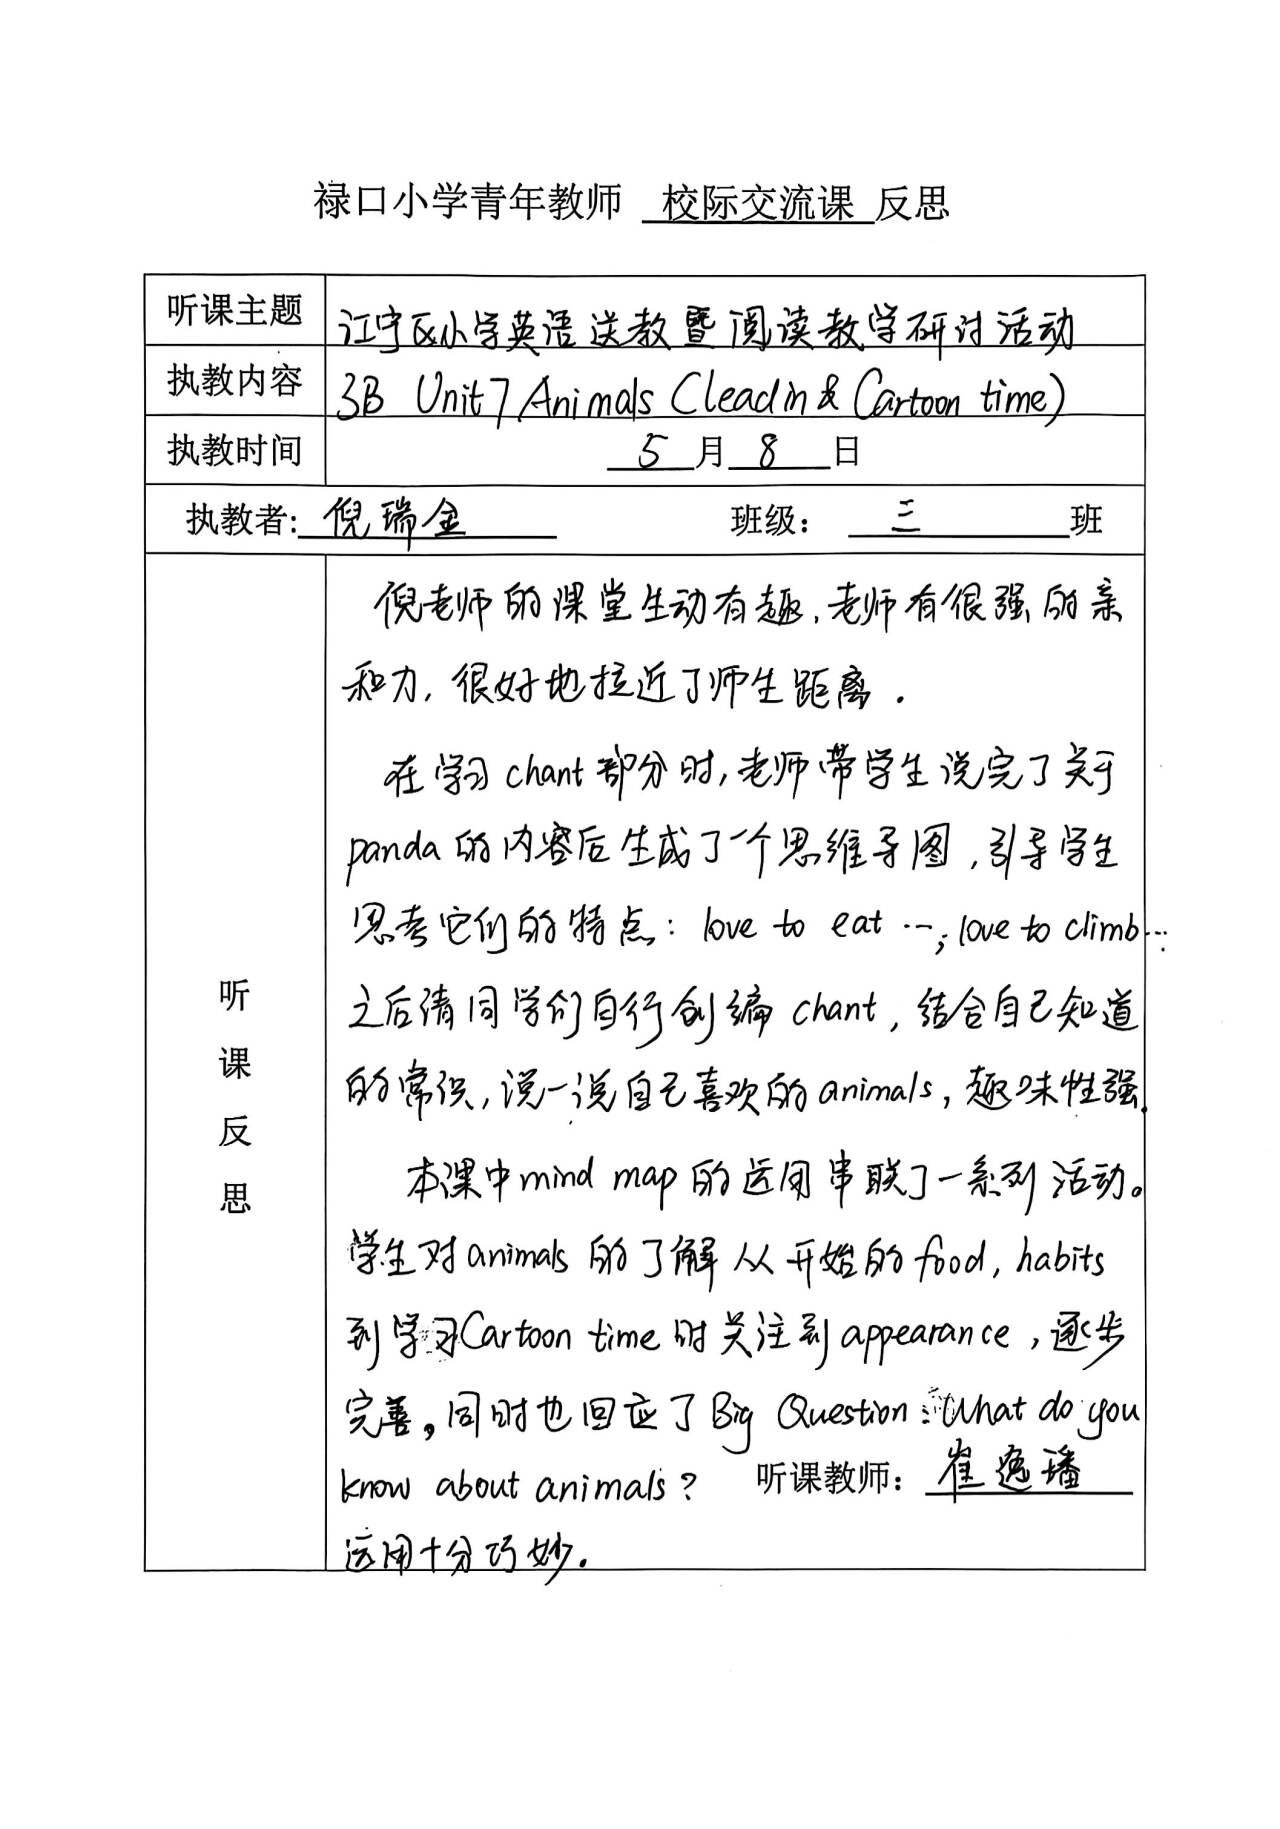 禄口小学青年教师 校际交流课 反思
听课主题 江宁区小学英语送教暨阅读教学研讨活动
执教内容 3B Unit7 Animals (Lead in & Cartoon time)
执教时间 5月8日
执教者: 倪瑞金 班级: 三 班
听课反思
倪老师的课堂生动有趣,老师有很强的亲
和力,很好地拉近了师生距离.
在学习chant部分时,老师带学生说完了关于
panda的内容后生成了一个思维导图,引导学生
思考它们的特点: love to eat …; love to climb…
之后请同学们自行创编 chant, 结合自己知道
的常识,说一说自己喜欢的animals,趣味性强.
本课中mind map的运用串联了一系列活动。
学生对animals的了解从开始的food, habits
到学习Cartoon time时关注到appearance,逐步
完善。同时也回应了Big Question: What do you
know about animals? 听课教师: 崔逸璠
运用十分巧妙.